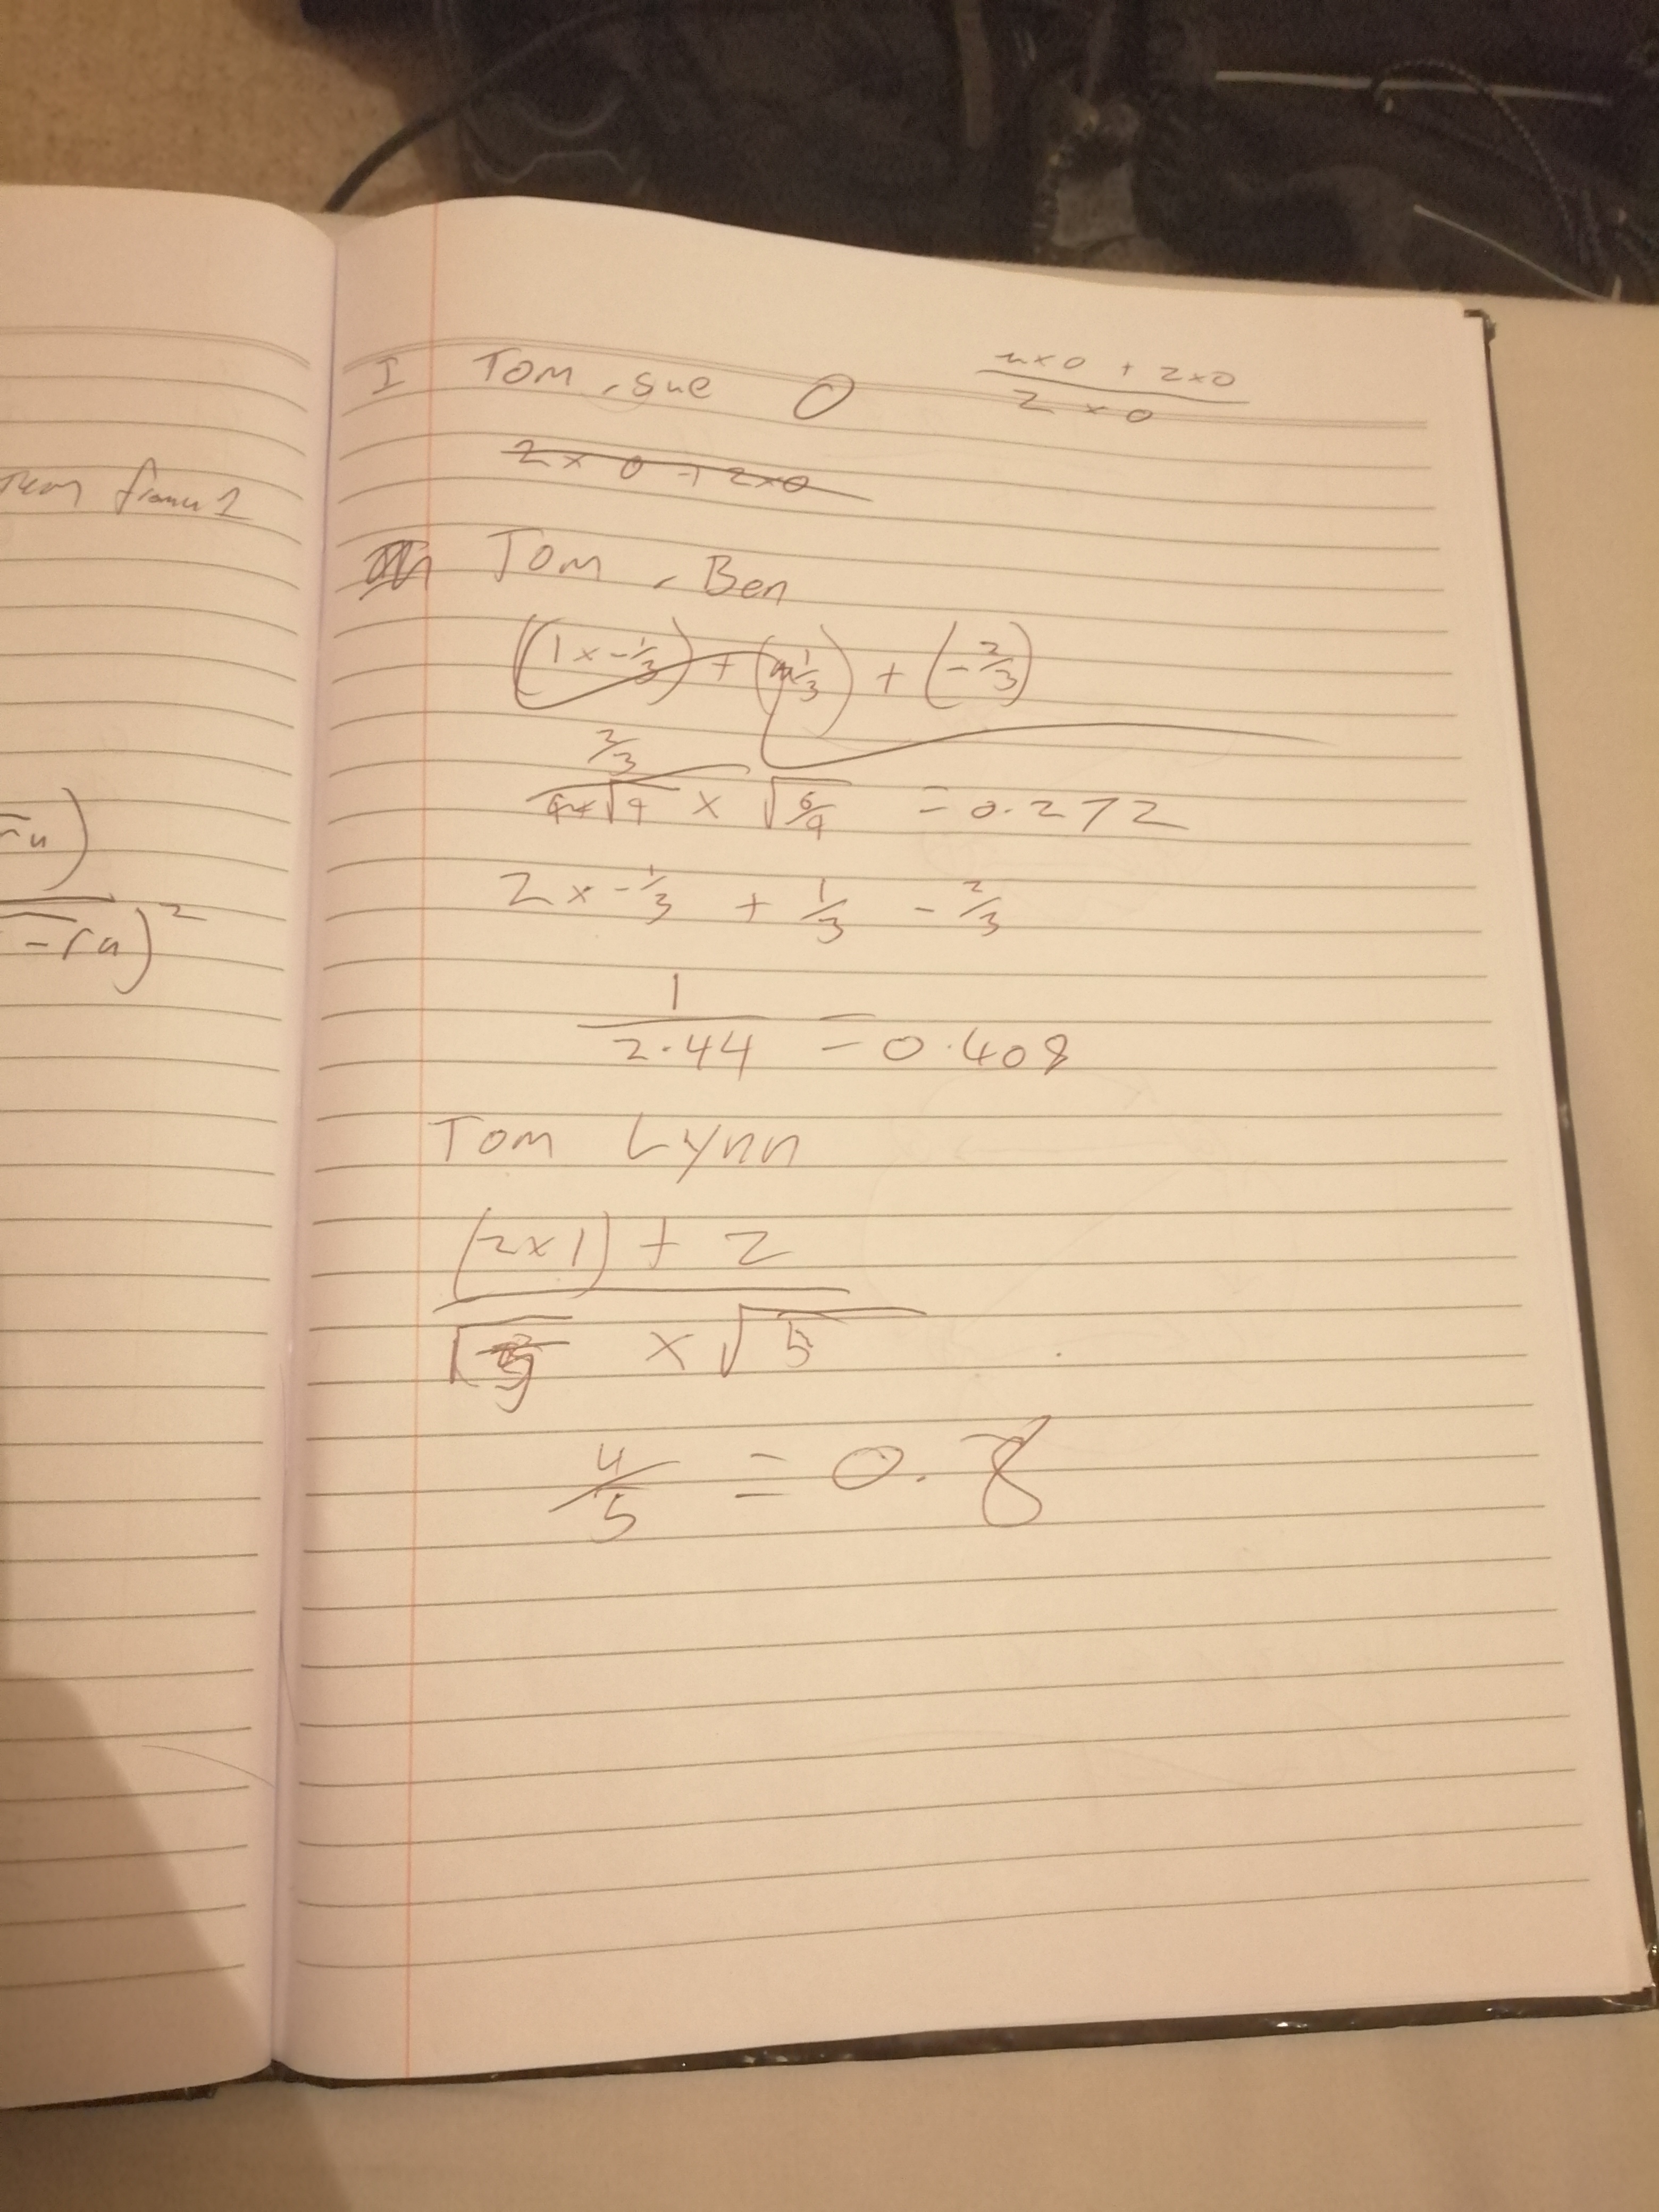 from 1
-ru)
-ru)²
I Tom, sue 0
x0 + 2x0
2 x 0
2x 0 + 2x0
Tom, Ben
(1 x -1/3) + (1/3) + (-2/3)
2/3
√9 x √6/9 = 0.272
2 x -1/3 + 1/3 - 2/3
1
2.44 = 0.408
Tom Lynn
(2x1) + 2
√5 x √5
4/5 = 0.8